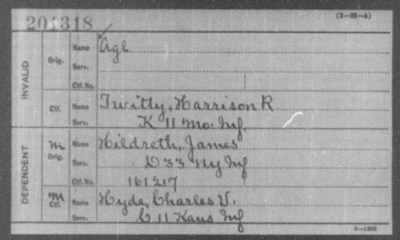 201318
(3-88-A)
INVALID
Orig.
Name Agl
Serv.
Ctf. No.
Ctf.
Name Twitty, Harrison R
Serv. K 11 Mo. Inf
DEPENDENT
m
Orig.
Name Hildreth, James
Serv. D 33 Ny Inf
Ctf. No. 161217
Ctf.
Name Hyde, Charles V.
Serv. C 11 Kans Inf